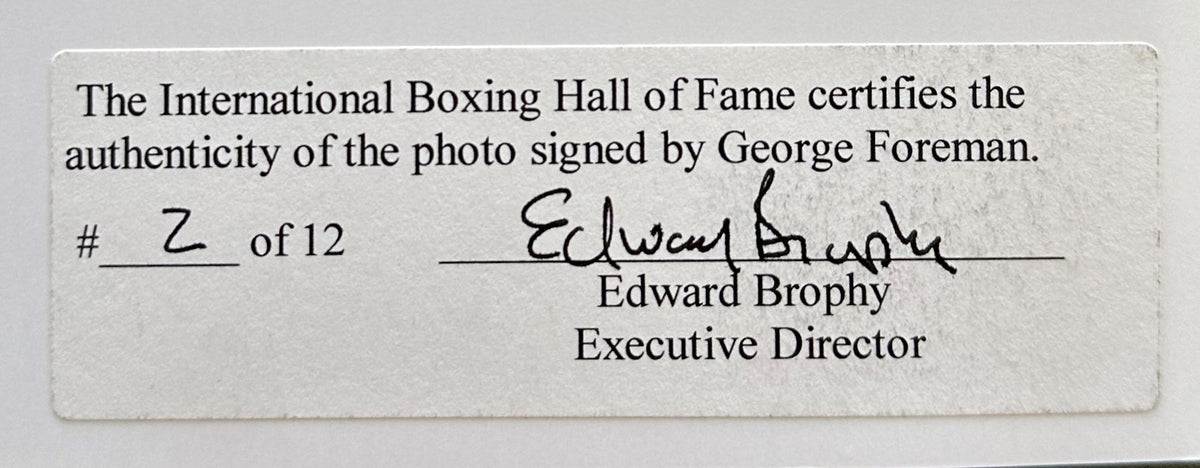 The International Boxing Hall of Fame certifies the
authenticity of the photo signed by George Foreman.
# 2 of 12 Edward Brophy
Edward Brophy
Executive Director